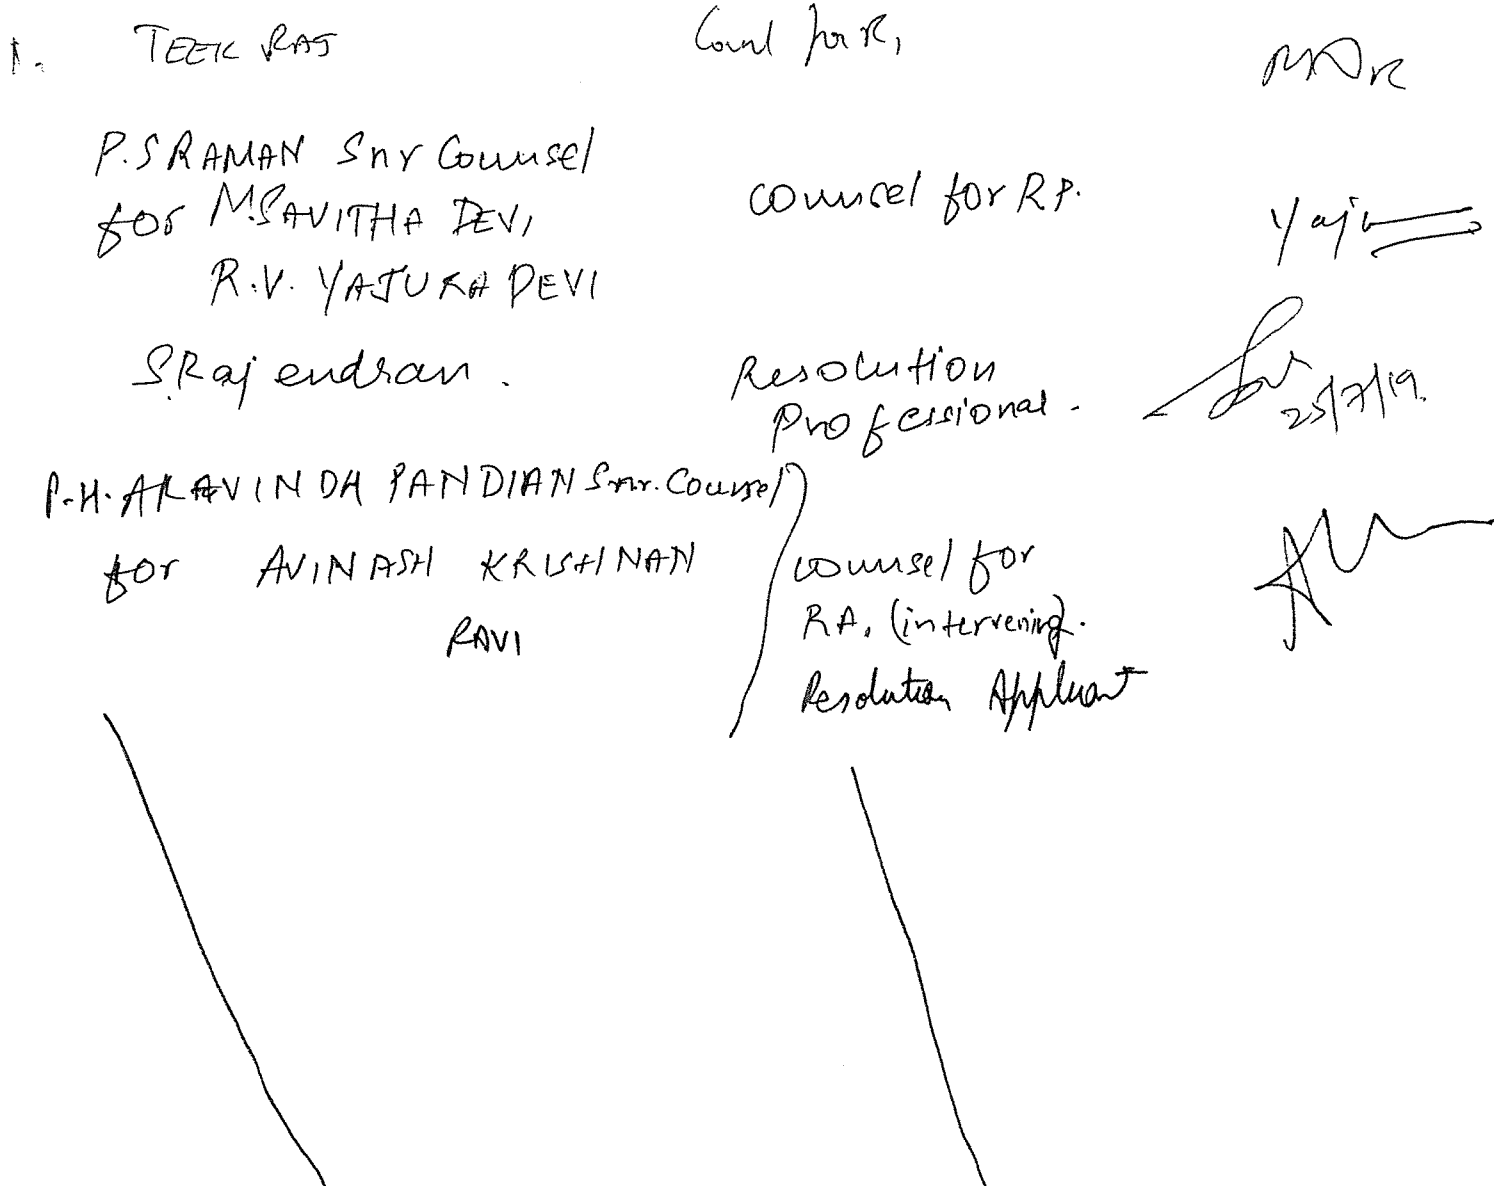 1. TEEK RAJ Counl for R1
P.S RAMAN Snr Counsel
for M.SAVITHA DEVI counsel for R P.
R.V. YAJURA DEVI Yaju
S.Rajendran. Resolution
Professional. 25/7/19.
P.H. ARAVINDH PANDIAN Snr. Counsel
for AVINASH KRISHNAN counsel for
RAVI RA. (intervening).
Resolution Applicant